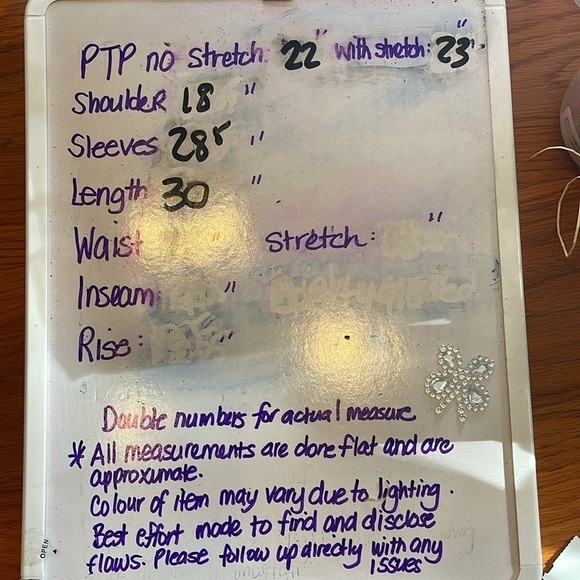 PTP no stretch: 22" with stretch: 23"
Shoulder 18 "
Sleeves 28 "
Length 30 "
Waist " Stretch: "
Inseam: "
Rise: "
Double numbers for actual measure
* All measurements are done flat and are
approximate.
Colour of item may vary due to lighting.
Best effort made to find and disclose
flaws. Please follow up directly with any
issues
OPEN